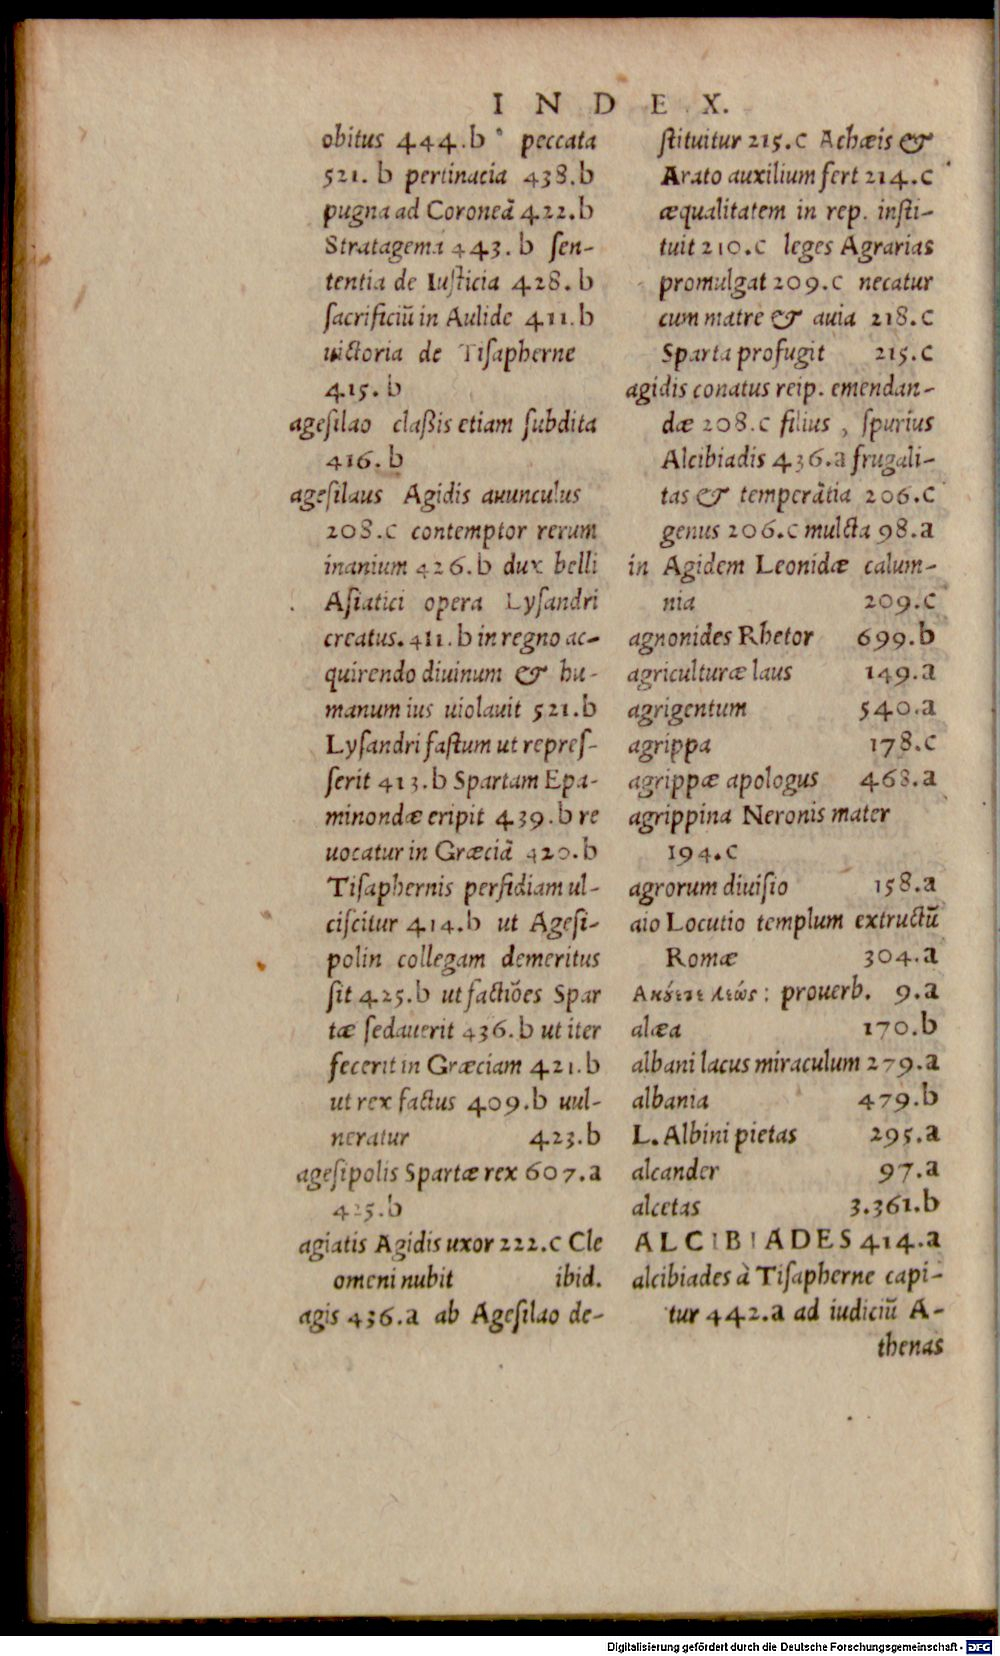 INDEX.
obitus 444.b peccata
521. b pertinacia 438.b
pugna ad Coroneã 422.b
Stratagema 443. b sen-
tentia de Iusticia 428. b
sacrificiũ in Aulide 411.b
uictoria de Tisapherne
415. b
agesilao claßis etiam subdita
416. b
agesilaus Agidis auunculus
208.c contemptor rerum
inanium 426.b dux belli
Asiatici opera Lysandri
creatus. 411.b in regno ac-
quirendo diuinum & hu-
manum ius uiolauit 521.b
Lysandri fastum ut repres-
serit 413.b Spartam Epa-
minondæ eripit 439.b re
uocatur in Græciã 420.b
Tisaphernis perfidiam ul-
ciscitur 414.b ut Agesi-
polin collegam demeritus
sit 425.b ut factiões Spar
tæ sedauerit 436.b ut iter
fecerit in Græciam 421.b
ut rex factus 409.b uul-
neratur 423.b
agesipolis Spartæ rex 607.a
425.b
agiatis Agidis uxor 222.c Cle
omeni nubit ibid.
agis 436.a ab Agesilao de-
stituitur 215.c Achæis &
Arato auxilium fert 214.c
æqualitatem in rep. insti-
tuit 210.c leges Agrarias
promulgat 209.c necatur
cum matre & auia 218.c
Sparta profugit 215.c
agidis conatus reip. emendan-
dæ 208.c filius , spurius
Alcibiadis 436.a frugali-
tas & temperãtia 206.c
genus 206.c mulcta 98.a
in Agidem Leonidæ calum-
nia 209.c
agnonides Rhetor 699.b
agriculturæ laus 149.a
agrigentum 540.a
agrippa 178.c
agrippæ apologus 468.a
agrippina Neronis mater
194.c
agrorum diuisio 158.a
aio Locutio templum extructũ
Romæ 304.a
Ακȣ́ετε λεώς : prouerb. 9.a
alæa 170.b
albani lacus miraculum 279.a
albania 479.b
L. Albini pietas 295.a
alcander 97.a
alcetas 3.361.b
ALCIBIADES 414.a
alcibiades à Tisapherne capi-
tur 442.a ad iudiciũ A-
thenas
Digitalisierung gefördert durch die Deutsche Forschungsgemeinschaft - DFG